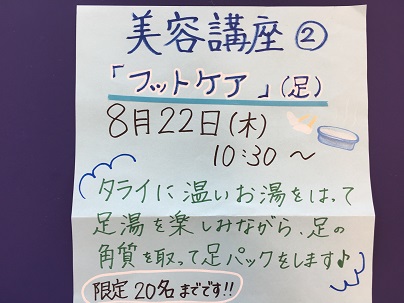 美容講座②
「フットケア」(足)
8月22日(木)
10:30〜
タライに温いお湯をはって
足湯を楽しみながら、足の
角質を取って足パックをします♪
限定20名までです!!